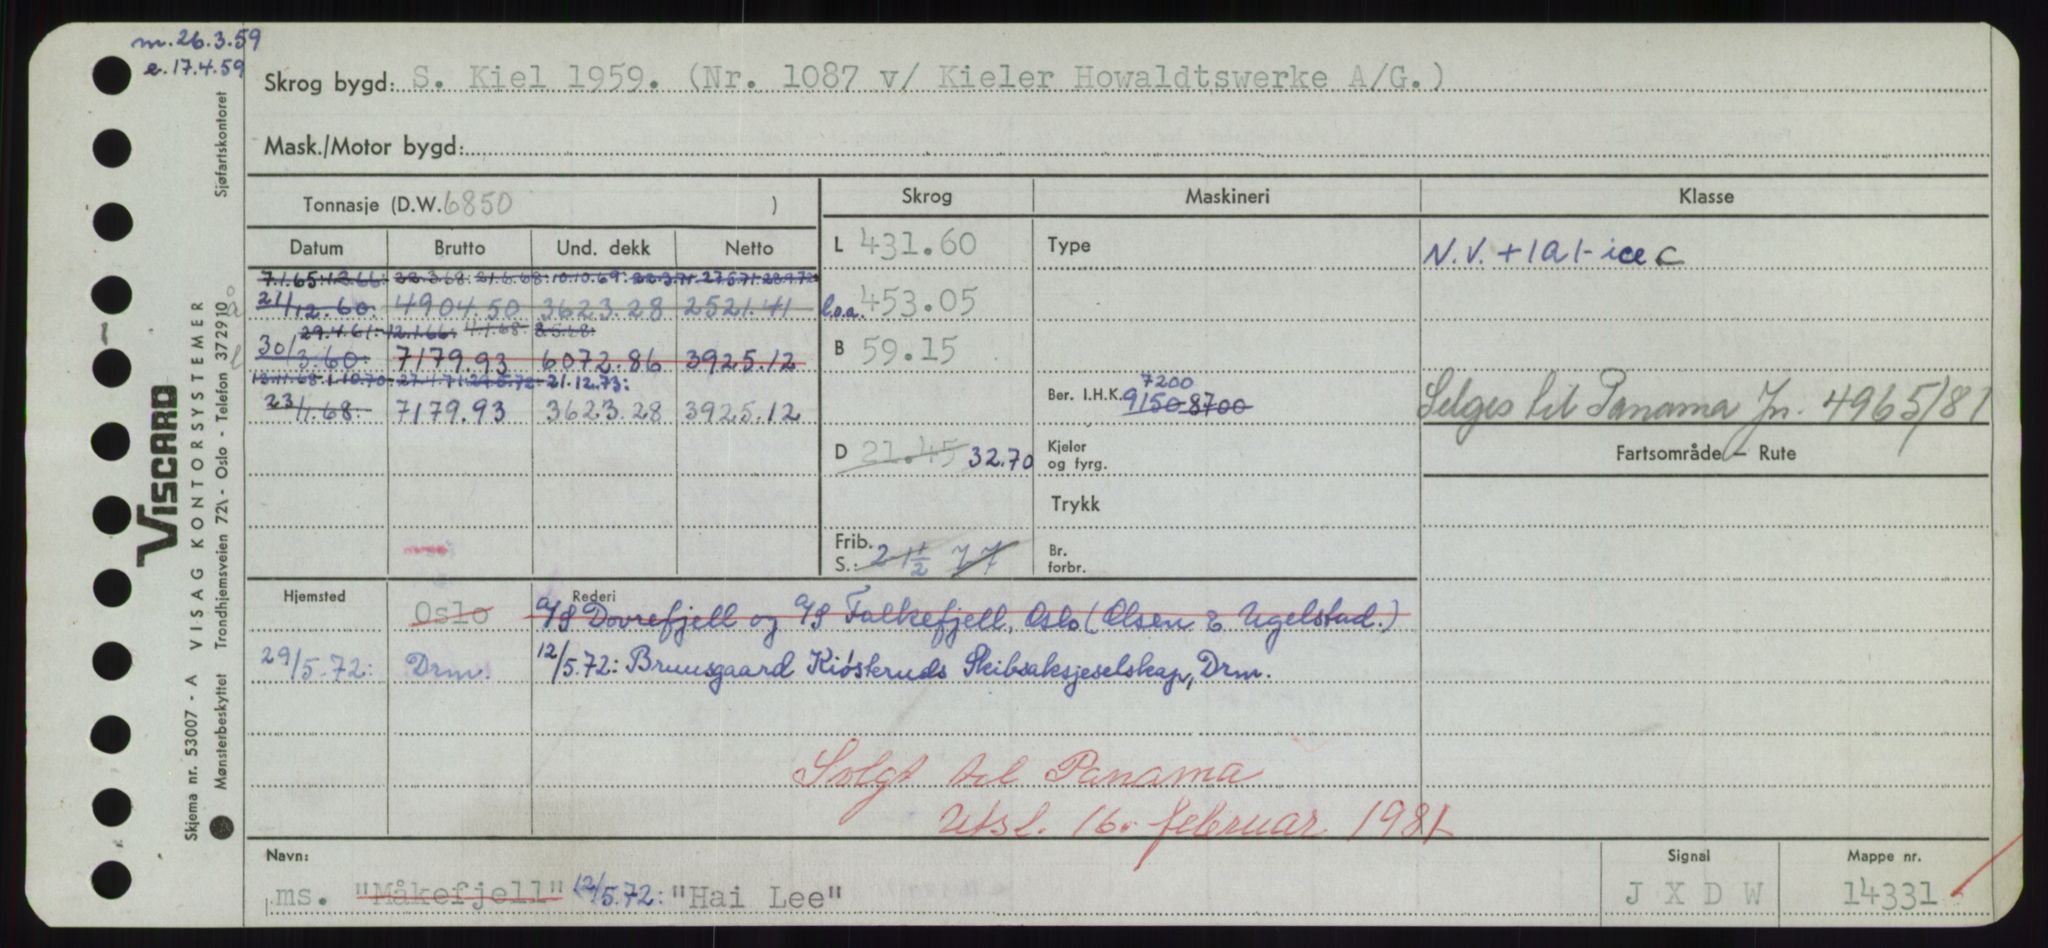 m. 26.3.59
e. 17.4.59
Skrog bygd: S. Kiel 1959. (Nr. 1087 v/ Kieler Howaldtswerke A/G.)
Mask./Motor bygd:
Tonnasje (D.W. 6850 )
Skrog Maskineri Klasse
Datum Brutto Und. dekk Netto
L 431.60 Type N.V. +1A1-ice C
7.1.65: 1.3.66: 22.3.68: 21.6.68: 10.10.69: 22.3.71 27.5.71: 28.9.72
21/12.60: 4904.50 3623.28 2521.41 l.o.a. 453.05
29.4.61: 12.1.66: 4.1.68: 8.5.68:
30/3.60: 7179.93 6072.86 3925.12 B 59.15
13.11.68: 1.10.70: 27.1.71: 29.5.72 21.12.73:
23/1.68: 7179.93 3623.28 3925.12
Ber. I.H.K. 9150 8700 7200
Selges til Panama Jn. 4965/81
D 21.45 32.70 Kjeler og fyrg.
Fartsområde – Rute
Trykk
Frib. S.: 2 1½
Br. forbr.
Hjemsted Rederi
Oslo A/S Dovrefjell og A/S Falkefjell, Oslo (Olsen & Ugelstad.)
29/5.72: Drm. 12/5.72: Bruusgaard Kiøsteruds Skibsaksjeselskap, Drm.
Solgt til Panama
Utsl. 16. februar 1981
Navn: Signal Mappe nr.
ms. "Måkefjell" 12/5.72: "Hai Lee" J X D W 14331
VISCARD
VISAG KONTORSYSTEMER
Skjema nr. 53007 - A
Mønsterbeskyttet Trondhjemsveien 72\ - Oslo - Telefon 372910
Sjøfartskontoret